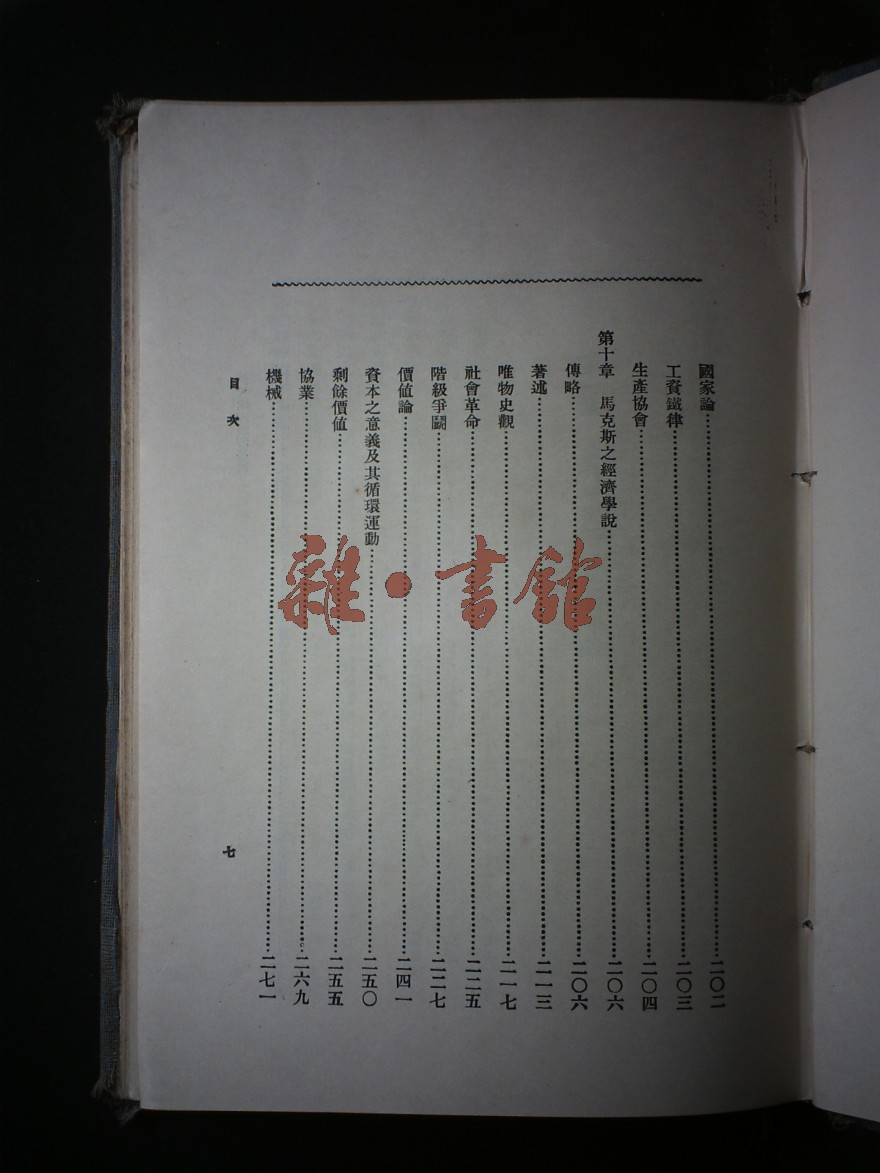 國家論⋯⋯⋯⋯二〇二
工資鐵律⋯⋯⋯⋯二〇三
生產協會⋯⋯⋯⋯二〇四
第十章　馬克斯之經濟學說⋯⋯⋯⋯二〇六
傳略⋯⋯⋯⋯二〇六
著述⋯⋯⋯⋯二一三
唯物史觀⋯⋯⋯⋯二一七
社會革命⋯⋯⋯⋯二二五
階級爭鬭⋯⋯⋯⋯二二七
價值論⋯⋯⋯⋯二四一
資本之意義及其循環運動⋯⋯⋯⋯二五〇
剩餘價值⋯⋯⋯⋯二五五
協業⋯⋯⋯⋯二六九
機械⋯⋯⋯⋯二七一
目次
七
雜·書館